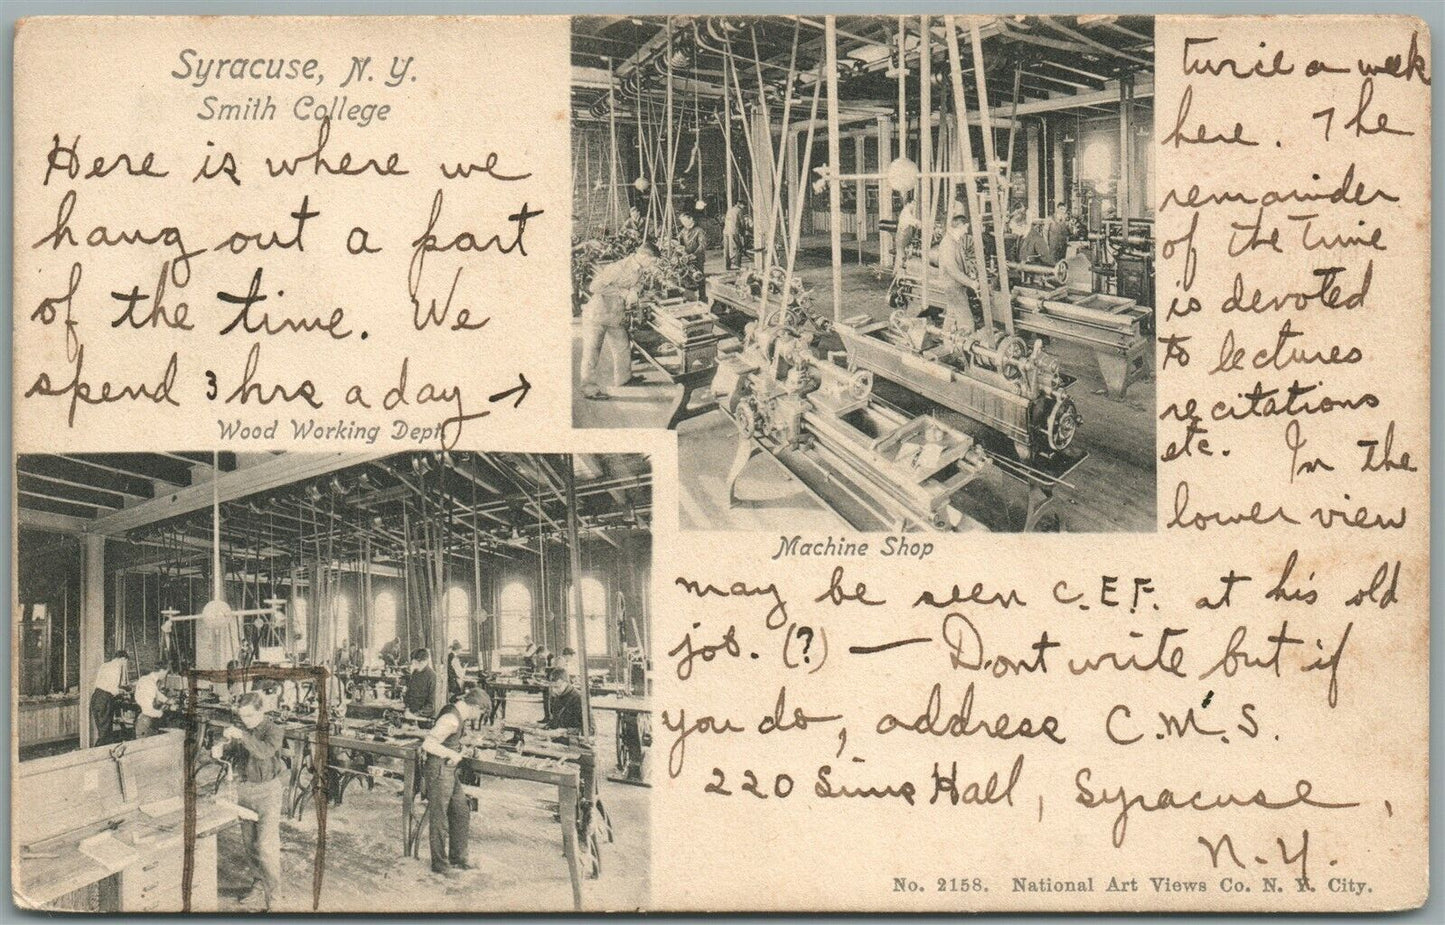 Syracuse, N. Y.
Smith College
Here is where we
hang out a part
of the time. We
spend 3 hrs a day →
Wood Working Dept.
twice a week
here. The
remainder
of the time
is devoted
to lectures
recitations
etc. In the
lower view
Machine Shop
may be seen C.E.F. at his old
job. (?) — Dont write but if
you do, address C.M.S.
220 Sims Hall, Syracuse,
N.Y.
No. 2158. National Art Views Co. N. Y. City.